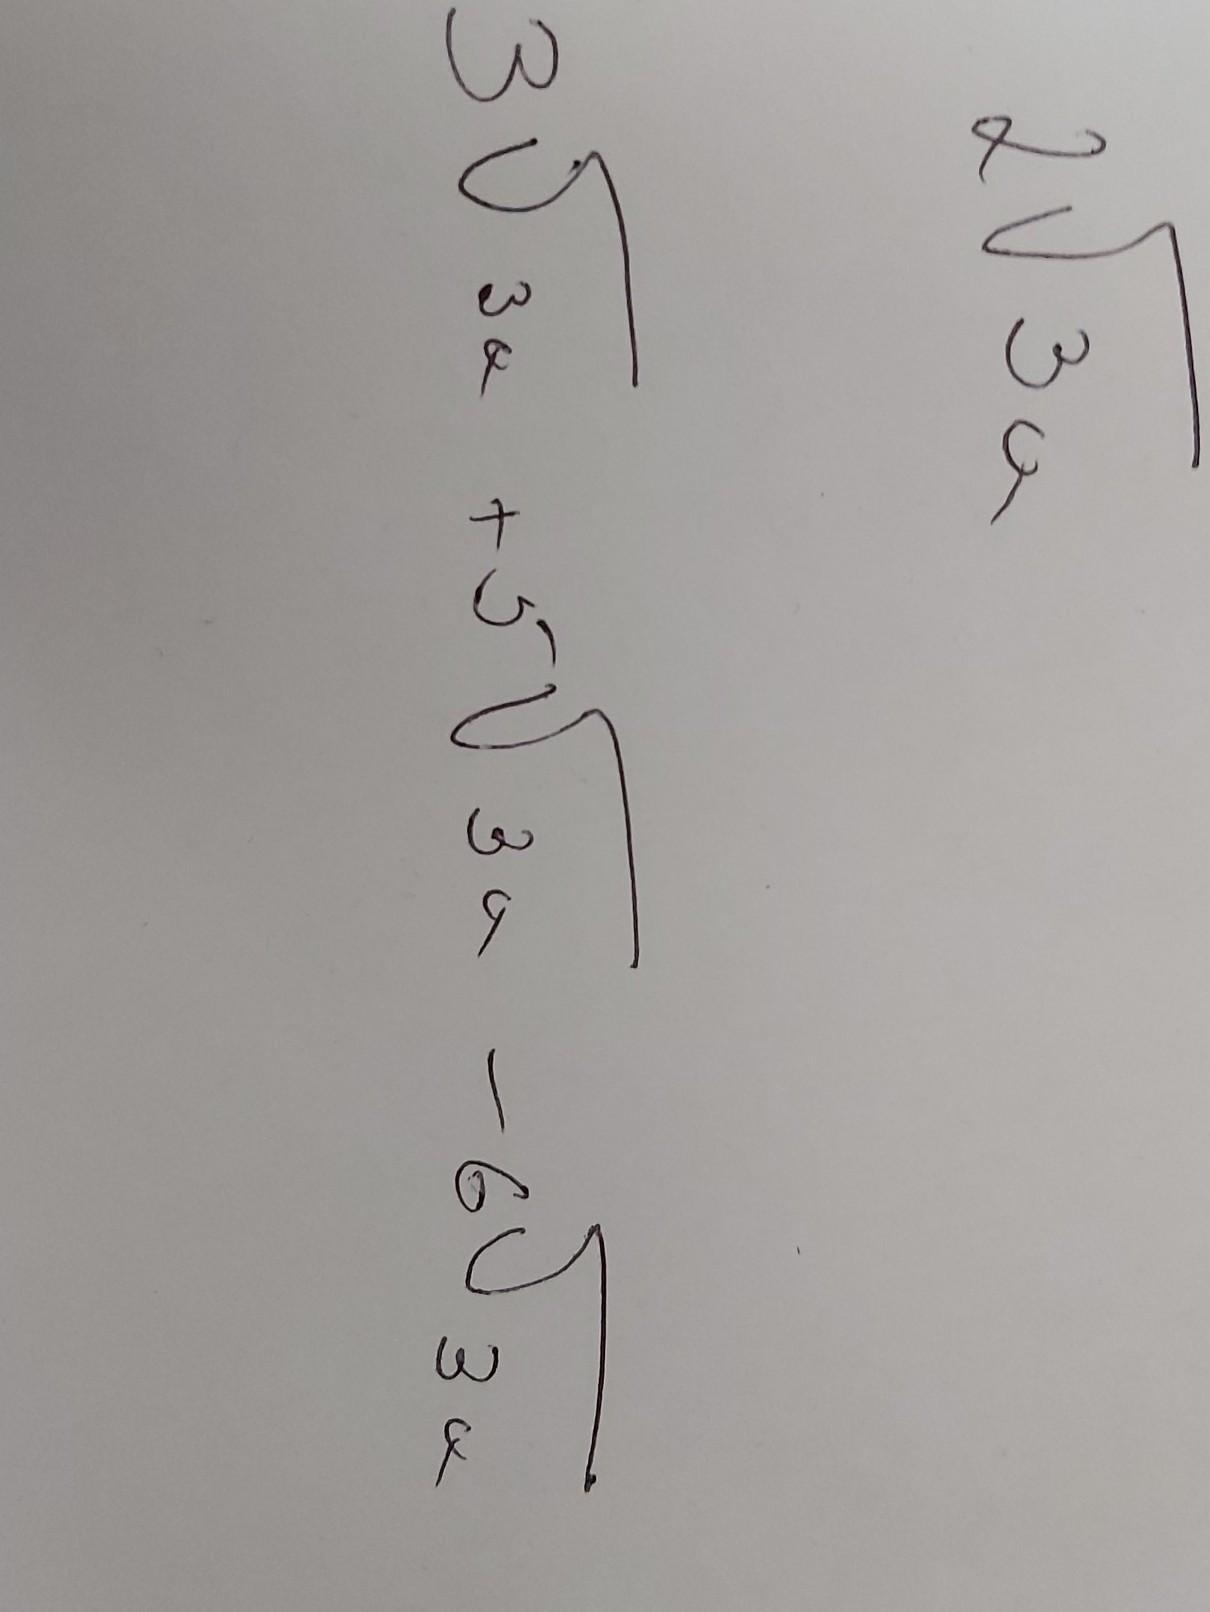 2√3a
3√3a + 5√3a - 6√3a